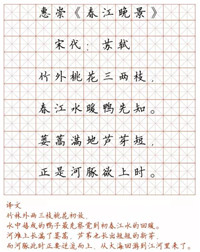 惠崇《春江晚景》
宋代：苏轼
竹外桃花三两枝，
春江水暖鸭先知。
蒌蒿满地芦芽短，
正是河豚欲上时。
译文
竹林外两三枝桃花初放，
水中嬉戏的鸭子最先察觉到初春江水的回暖。
河滩上长满了蒌蒿，芦苇也长出短短的新芽，
而河豚此时正要逆流而上，从大海回游到江河里来了。